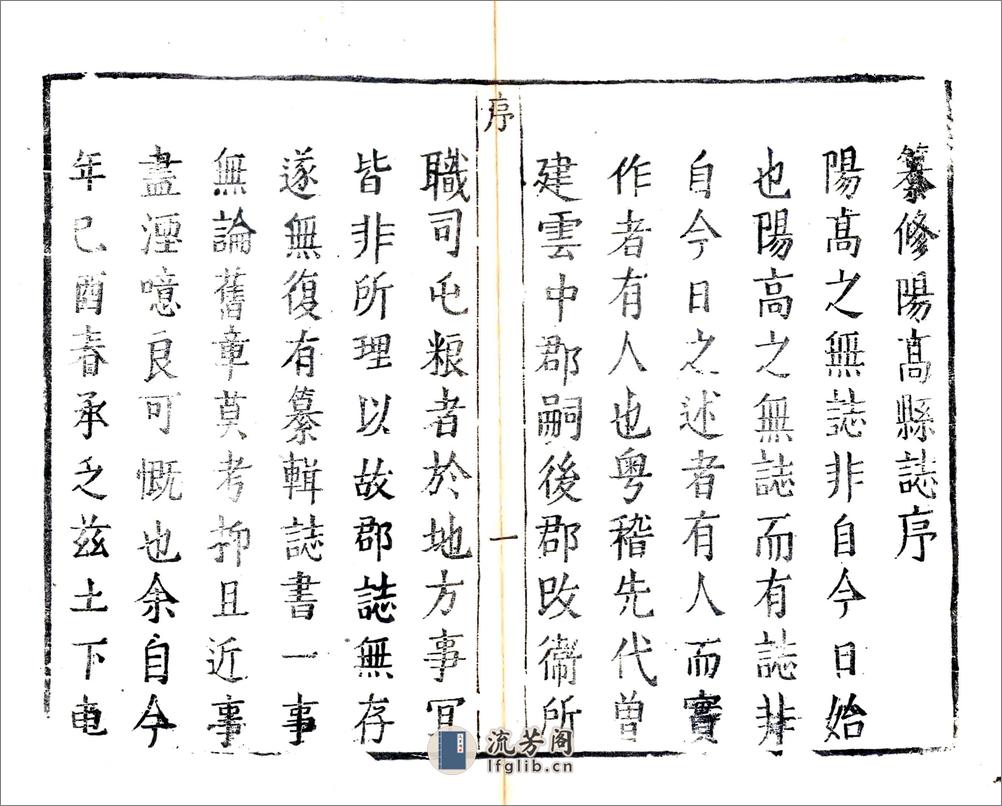 纂修陽髙縣誌序
陽髙之無誌非自今日始
也陽高之無誌而有誌非
自今日之述者有人而實
作者有人也粤稽先代曽
建雲中郡嗣後郡改衞所
序
一
職司屯粮者於地方事冝
皆非所理以故郡誌無存
遂無復有纂輯誌書一事
無論舊章莫考抑且近事
盡湮噫良可慨也余自今
年己酉春承乏兹土下車
流芳阁
lfglib.cn